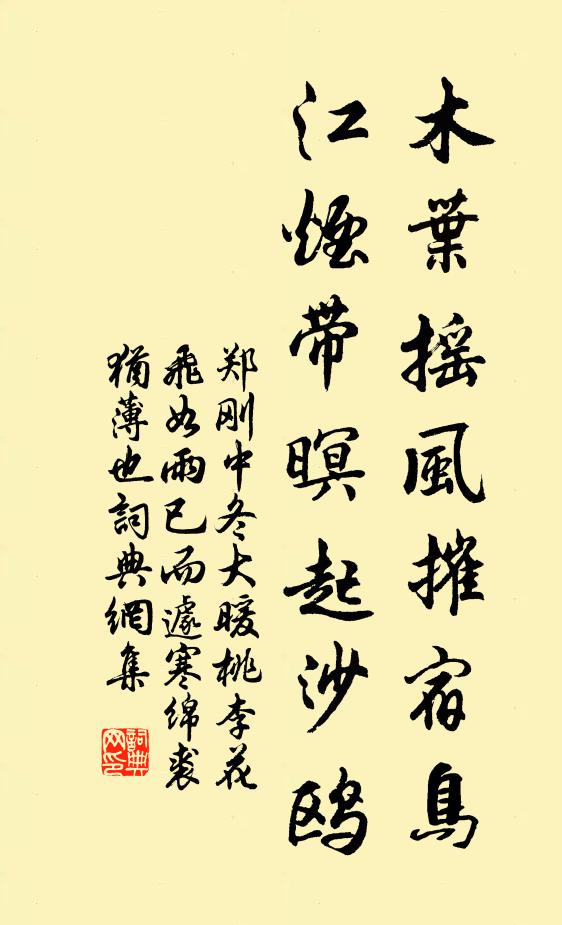 木葉摇風摧宿鳥
江煙帶暝起沙鷗
郑刚中冬大暖桃李花
飛如雨已而遽寒綿裘
猶薄也詞典網集
詞典网印